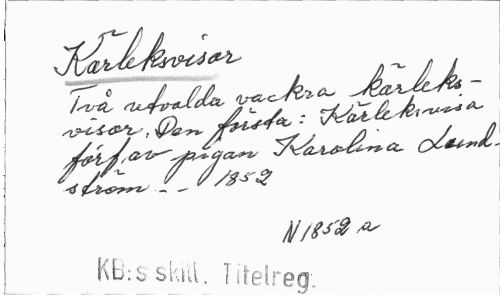 Kärleksvisor
Två utvalda vackra kärleks-
visor. Den första: Kärleksvisa
förf. av pigan Karolina Lund-
ström -- 1852
N 1852 a
KB:s skill. Titelreg.